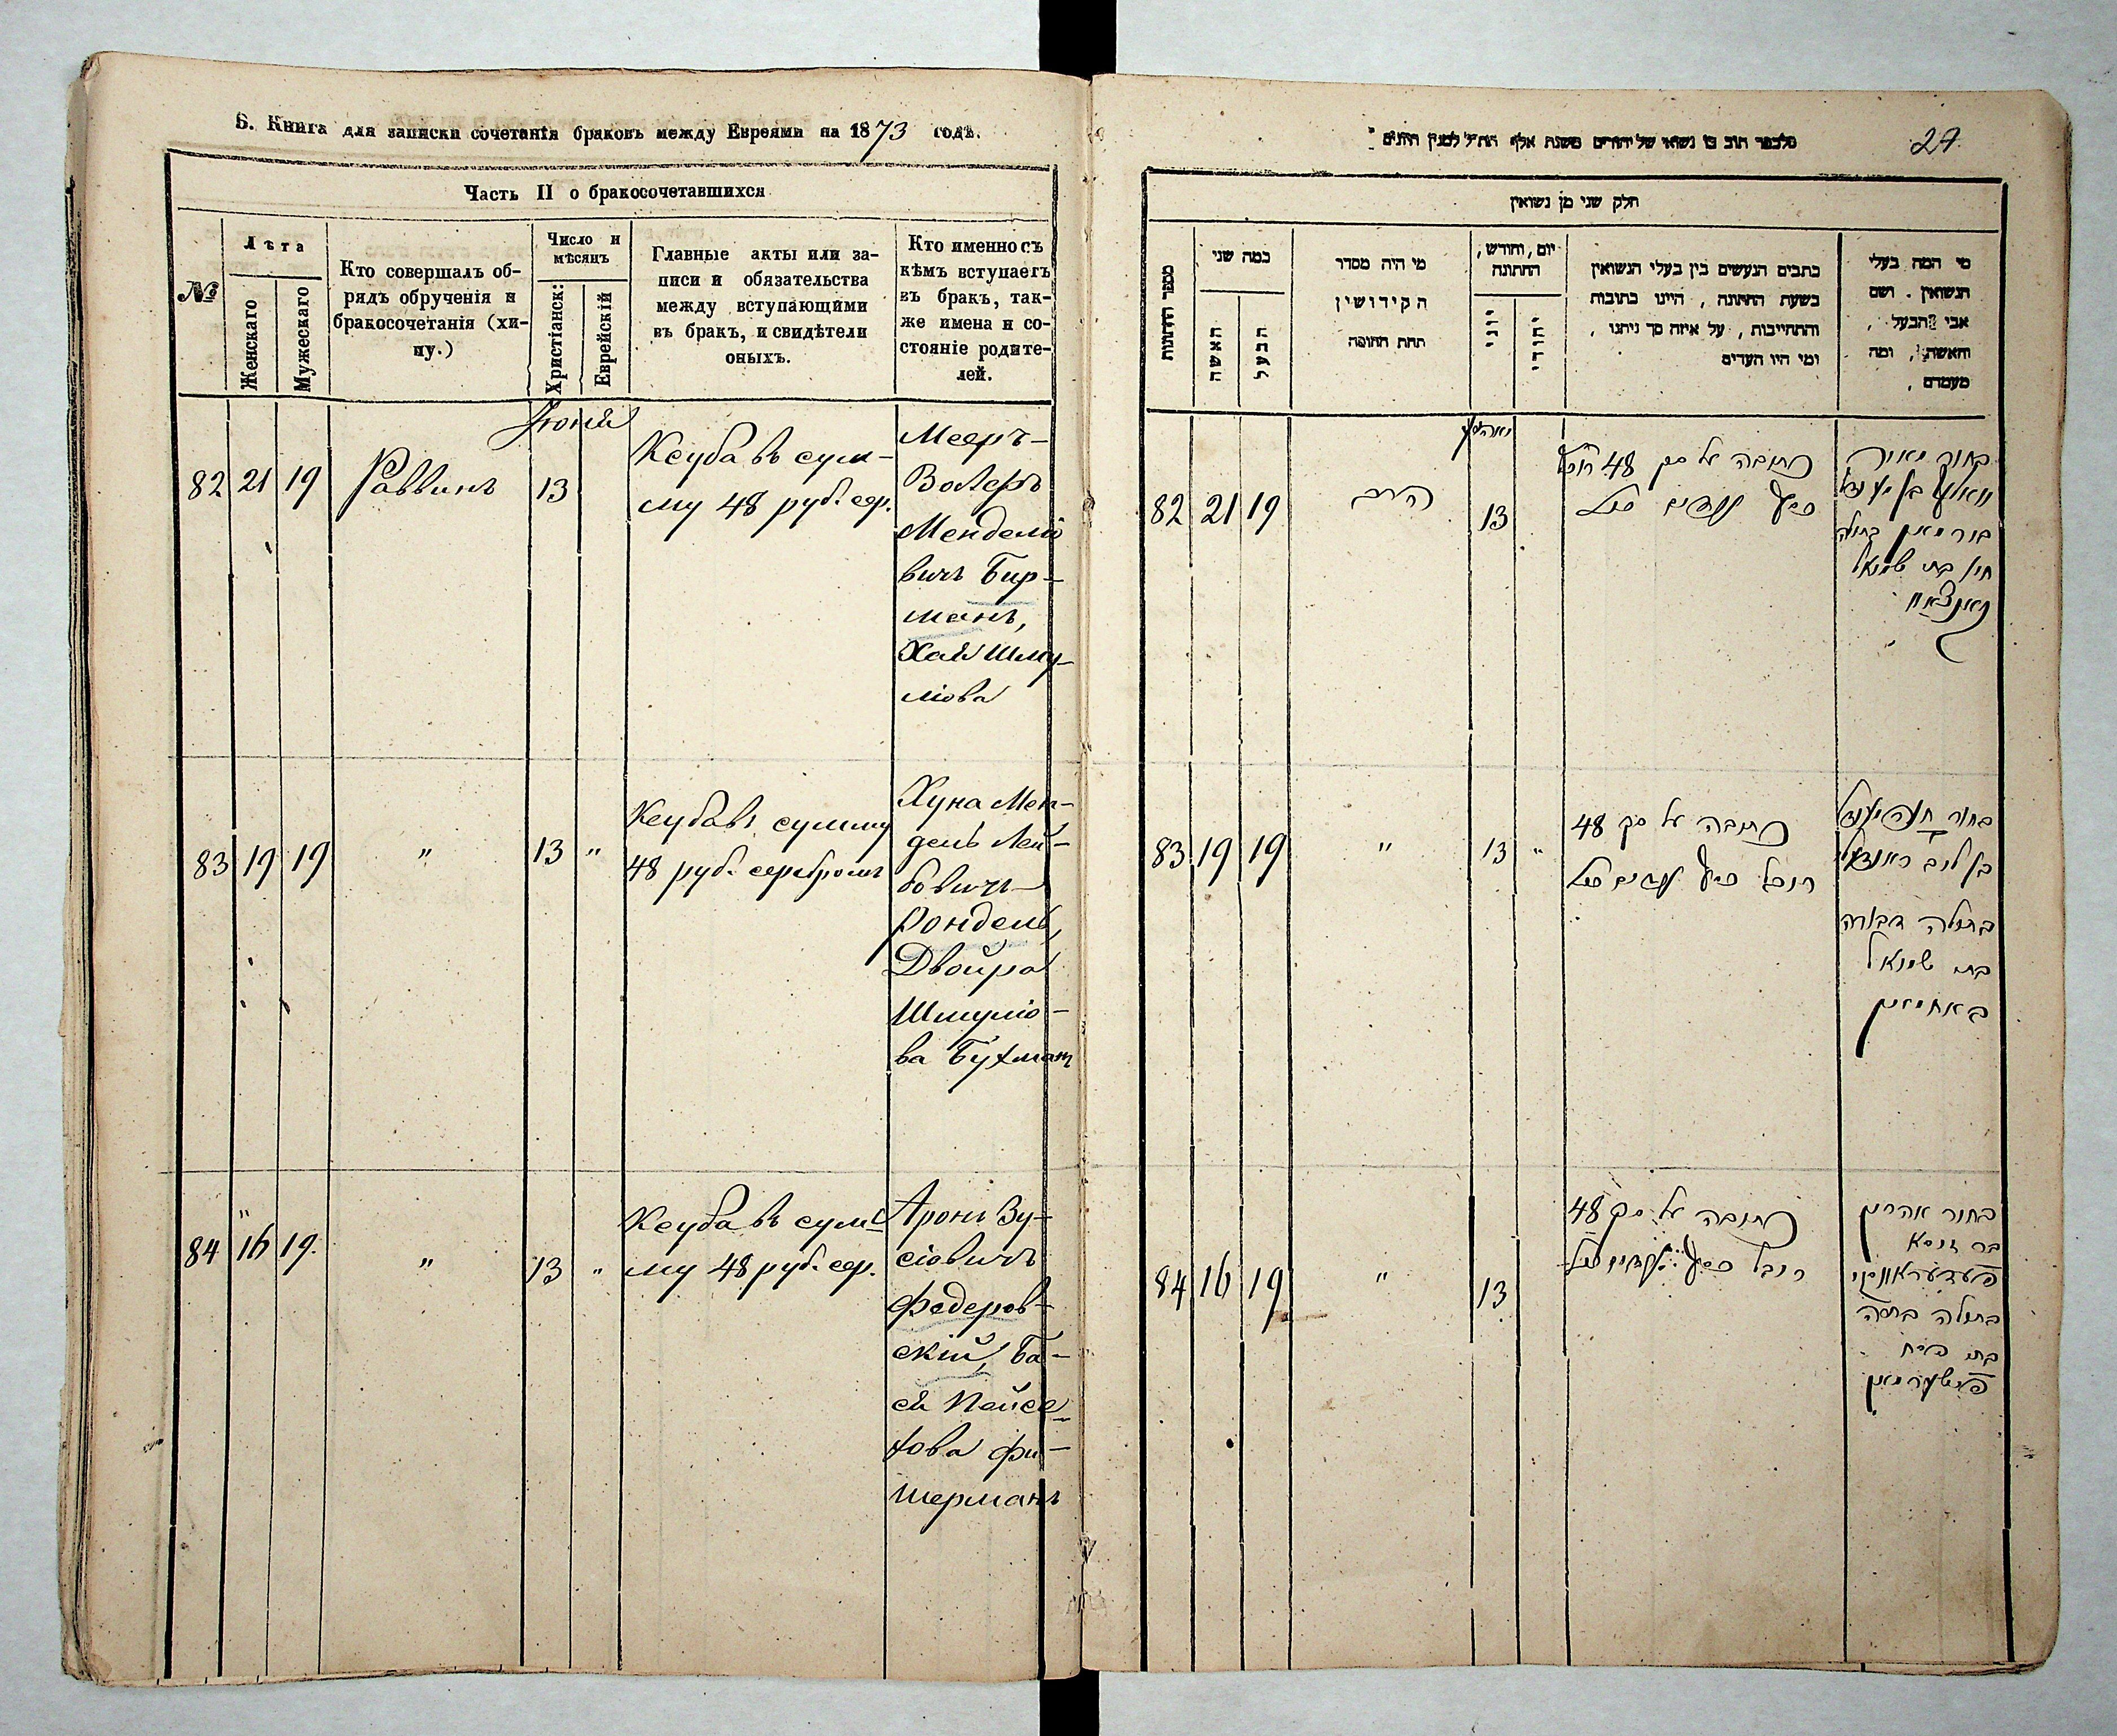 Б. Книга для записки сочетанія браковъ между Евреями на 1873 годъ.
Часть II о бракосочетавшихся
№
Лѣта
Женскаго
Мужескаго
Кто совершалъ об-
рядъ обрученія и
бракосочетанія (хи-
пу.)
Число и
мѣсяцъ
Христіанск:
Еврейскій
Главные акты или за-
писи и обязательства
между вступающими
въ бракъ, и свидѣтели
оныхъ.
Кто именно съ
кѣмъ вступаетъ
въ бракъ, так-
же имена и со-
стояніе родите-
лей.
Іюня
82 21 19 Раввинъ 13
Ксуба въ сум-
му 48 руб. сер.
Мееръ-
Волеръ
Менделіо
вичъ Бир-
манъ,
Хая Шму-
ліова
83 19 19 " 13 "
Ксуба въ сумму
48 руб. серебромъ
Хуна Мен-
дель Лей-
бовичъ
Рондель,
Двойра
Шмуліо-
ва Бухманъ
84 16 19. " 13 "
Ксуба въ сум-
му 48 руб. сер.
Аронъ Зу-
сіовичъ
Федеров-
скій, Ба-
ся Пейса-
хова Фи-
шерманъ
27
חלק שני מן נשואין
מספר החתונות
כמה שני
האשה
הבעל
מי היה מסדר
הקידושין
תחת החופה
יום, וחודש,
החתונה
יוני
יהודי
כתבים הנעשים בין בעלי הנשואין
בשעת החתונה, היינו כתובות
והתחייבות, על איזה סך ניתנו,
ומי היו העדים
מי המה בעלי
הנשואין. ושם
אבי הבעל,
והאשה, ומה
מעמדם,
82 21 19 הרב 13
כתובה על סך 48
83 19 19 " 13 "
כתובה על סך 48
בתולה דבורה
בת שמואל
באחמאן
84 16 19 " 13
כתובה על סך 48
בחור אהרן
בר זוסא
בתולה באסה
בת פסח
פישערמאן